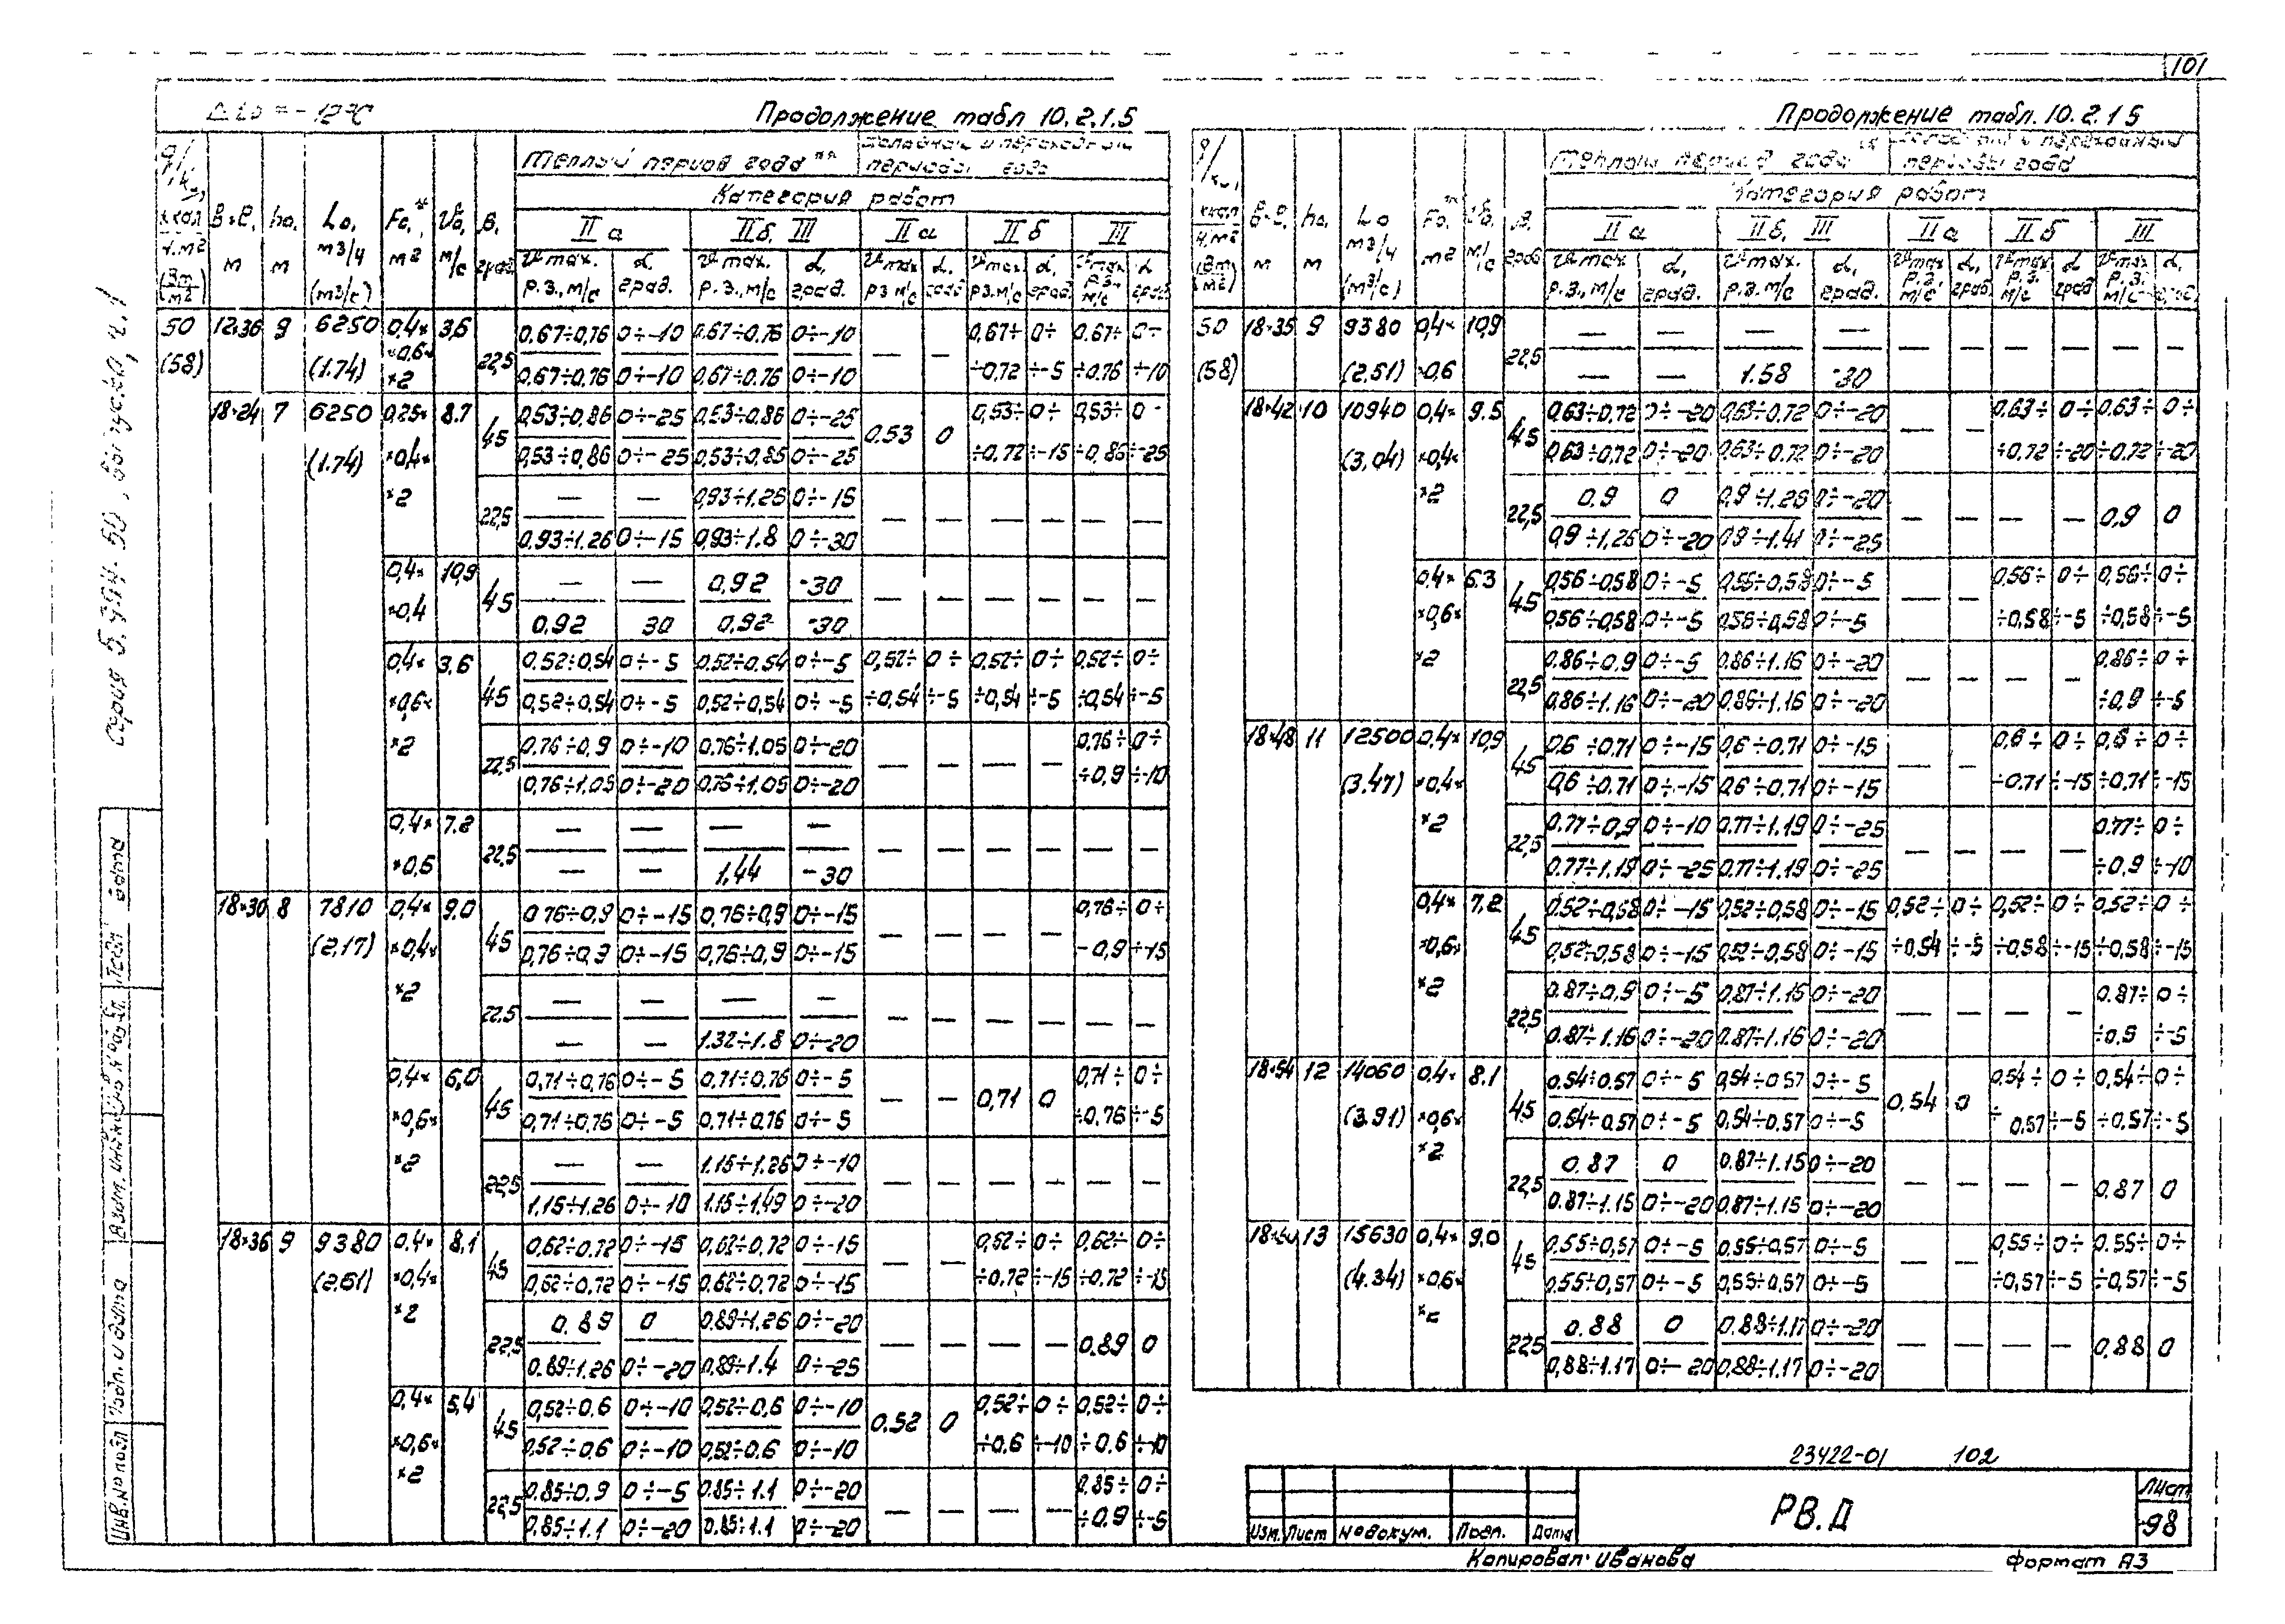 101
Δto = -12°C
Продолжение табл 10.2.1.5
Теплый период года**
Холодный и переходный периоды года
Категория работ
q/, ккал/ч.м² (Вт/м²) | B×l, м | ho, м | Lo, м³/ч (м³/с) | Fo,* м² | Vo, м/с | β, град. | IIа | IIб, III | IIа | IIб | III
Vmax. р.з., м/с | α, град. | Vmax. р.з., м/с | α, град. | Vmax р.з м/с | α, град | Vmax р.з. м/с | α, град. | Vmax р.з., м/с | α град
50 (58) | 12×36 | 9 | 6250 (1.74) | 0,4××0,6××2 | 3,6 | 22,5 | 0,67÷0,76 | 0÷-10 | 0,67÷0,76 | 0÷-10 | — | — | 0,67÷÷0,72 | 0÷÷-5 | 0,67÷÷0,76 | 0÷÷10
0,67÷0,76 | 0÷-10 | 0,67÷0,76 | 0÷-10
18×24 | 7 | 6250 (1.74) | 0,25××0,4××2 | 8.7 | 45 | 0,53÷0,86 | 0÷-25 | 0,53÷0,86 | 0÷-25 | 0.53 | 0 | 0,53÷÷0,72 | 0÷÷-15 | 0,53÷÷0,86 | 0÷-25
0,53÷0,86 | 0÷-25 | 0,53÷0,86 | 0÷-25
22,5 | — | — | 0,93÷1.26 | 0÷-15 | — | — | — | — | — | —
0,93÷1.26 | 0÷-15 | 0,93÷1.8 | 0÷-30
0,4××0,4 | 10,9 | 45 | — | — | 0,92 | -30 | — | — | — | — | — | —
0.92 | 30 | 0,92 | -30
0,4××0,6××2 | 3,6 | 45 | 0.52÷0,54 | 0÷-5 | 0,52÷0,54 | 0÷-5 | 0,52÷÷0,54 | 0÷÷-5 | 0,52÷÷0,54 | 0÷÷-5 | 0,52÷÷0,54 | 0÷÷-5
0,52÷0,54 | 0÷-5 | 0,52÷0,54 | 0÷-5
22,5 | 0.76÷0,9 | 0÷-10 | 0,76÷1.05 | 0÷-20 | — | — | — | — | 0,76÷÷0,9 | 0÷÷-10
0,76÷1,05 | 0÷-20 | 0,76÷1.05 | 0÷-20
0,4××0,6 | 7.2 | 22,5 | — | — | — | — | — | — | — | — | — | —
— | — | 1,44 | -30
18×30 | 8 | 7810 (2,17) | 0,4××0,4××2 | 9.0 | 45 | 0.76÷0,9 | 0÷-15 | 0,76÷0,9 | 0÷-15 | — | — | — | — | 0,76÷-0,9 | 0÷÷-15
0,76÷0,9 | 0÷-15 | 0,76÷0,9 | 0÷-15
22,5 | — | — | — | — | — | — | — | — | — | —
— | — | 1.32÷1.8 | 0÷-20
0,4××0,6××2 | 6,0 | 45 | 0,71÷0,76 | 0÷-5 | 0,71÷0,76 | 0÷-5 | — | — | 0,71 | 0 | 0,71÷÷0,76 | 0÷÷-5
0,71÷0,76 | 0÷-5 | 0,71÷0,76 | 0÷-5
22,5 | — | — | 1.15÷1.26 | 0÷-10 | — | — | — | — | — | —
1,15÷1.26 | 0÷-10 | 1.15÷1,49 | 0÷-20
18×36 | 9 | 9380 (2.61) | 0.4××0,4××2 | 8,1 | 45 | 0,62÷0,72 | 0÷-15 | 0,62÷0,72 | 0÷-15 | — | — | 0,62÷÷0,72 | 0÷÷-15 | 0,62÷÷0,72 | 0÷÷-15
0,62÷0,72 | 0÷-15 | 0.62÷0,72 | 0÷-15
22,5 | 0.89 | 0 | 0.89÷1.26 | 0÷-20 | — | — | — | — | 0,89 | 0
0.89÷1.26 | 0÷-20 | 0,89÷1.4 | 0÷-25
0,4××0,6××2 | 5,4 | 45 | 0,52÷0,6 | 0÷-10 | 0,52÷0,6 | 0÷-10 | 0.52 | 0 | 0,52÷÷0,6 | 0÷÷-10 | 0,52÷÷0,6 | 0÷÷-10
0,52÷0,6 | 0÷-10 | 0,52÷0.6 | 0÷-10
22,5 | 0.85÷0.9 | 0÷-5 | 0.85÷1.1 | 0÷-20 | — | — | — | — | 0,85÷÷0.9 | 0÷÷-5
0.85÷1.1 | 0÷-20 | 0.85÷1.1 | 0÷-20
Продолжение табл. 10.2.1 5
Теплый период года**
Холодный и переходный периоды года
Категория работ
q/, ккал/ч.м² (Вт/м²) | B×l, м | ho, м | Lo м³/ч (м³/с) | Fo,** м² | Vo, м/с | β, град | IIа | IIб, III | IIа | IIб | III
Vmax р.з., м/с | α, град. | Vmax. р.з. м/с | α, град. | Vmax р.з. м/с | α, град | Vmax р.з. м/с | α град | Vmax. р.з. м/с | α, град.
50 (58) | 18×36 | 9 | 9380 (2.61) | 0,4××0,6 | 10,9 | 22,5 | — | — | — | — | — | — | — | — | — | —
— | — | 1.58 | -30
18×42 | 10 | 10940 (3,04) | 0,4××0,4××2 | 9.5 | 45 | 0,63÷0,72 | 0÷-20 | 0,63÷0,72 | 0÷-20 | — | — | 0,63÷÷0,72 | 0÷÷-20 | 0,63÷÷0,72 | 0÷÷-20
0,63÷0,72 | 0÷-20 | 0,63÷0,72 | 0÷-20
22,5 | 0.9 | 0 | 0,9÷1.26 | 0÷-20 | — | — | — | — | 0,9 | 0
0,9÷1,26 | 0÷-20 | 0,9÷1.41 | 0÷-25
0,4××0,6××2 | 6.3 | 45 | 0,56÷0,58 | 0÷-5 | 0,56÷0,58 | 0÷-5 | — | — | 0,56÷÷0,58 | 0÷÷-5 | 0,56÷÷0,58 | 0÷÷-5
0,56÷0,58 | 0÷-5 | 0,56÷0,58 | 0÷-5
22,5 | 0.86÷0.9 | 0÷-5 | 0,86÷1.16 | 0÷-20 | — | — | — | — | 0,86÷÷0,9 | 0÷÷-5
0,86÷1.16 | 0÷-20 | 0,86÷1.16 | 0÷-20
18×48 | 11 | 12500 (3.47) | 0,4××0,4××2 | 10,9 | 45 | 0,6÷0,71 | 0÷-15 | 0,6÷0,71 | 0÷-15 | — | — | 0,6÷÷0,71 | 0÷÷-15 | 0,6÷÷0,71 | 0÷÷-15
0,6÷0,71 | 0÷-15 | 0,6÷0,71 | 0÷-15
22,5 | 0.77÷0,9 | 0÷-10 | 0.77÷1.19 | 0÷-25 | — | — | — | — | 0.77÷÷0,9 | 0÷÷-10
0.77÷1.19 | 0÷-25 | 0.77÷1.19 | 0÷-25
0,4××0,6××2 | 7,2 | 45 | 0.52÷0,58 | 0÷-15 | 0,52÷0,58 | 0÷-15 | 0,52÷÷0.54 | 0÷÷-5 | 0,52÷÷0,58 | 0÷÷-15 | 0,52÷÷0,58 | 0÷÷-15
0,52÷0,58 | 0÷-15 | 0,52÷0,58 | 0÷-15
22,5 | 0.87÷0,9 | 0÷-5 | 0,87÷1.16 | 0÷-20 | — | — | — | — | 0.87÷÷0.9 | 0÷÷-5
0.87÷1.16 | 0÷-20 | 0.87÷1.16 | 0÷-20
18×54 | 12 | 14060 (3.91) | 0,4××0,6××2 | 8.1 | 45 | 0.54÷0.57 | 0÷-5 | 0,54÷0.57 | 0÷-5 | 0.54 | 0 | 0.54÷÷0,57 | 0÷÷-5 | 0,54÷÷0,57 | 0÷÷-5
0.54÷0.57 | 0÷-5 | 0,54÷0.57 | 0÷-5
22,5 | 0.87 | 0 | 0.87÷1.15 | 0÷-20 | — | — | — | — | 0.87 | 0
0.87÷1.15 | 0÷-20 | 0,87÷1.15 | 0÷-20
18×60 | 13 | 15630 (4.34) | 0,4××0,6××2 | 9.0 | 45 | 0.55÷0,57 | 0÷-5 | 0,55÷0,57 | 0÷-5 | — | — | 0,55÷÷0,57 | 0÷÷-5 | 0.55÷÷0,57 | 0÷÷-5
0.55÷0,57 | 0÷-5 | 0,55÷0,57 | 0÷-5
22,5 | 0.88 | 0 | 0.88÷1.17 | 0÷-20 | — | — | — | — | 0.88 | 0
0,88÷1.17 | 0÷-20 | 0,88÷1.17 | 0÷-20
23422-01 102
Изм. Лист № докум. Подп. Дата
РВ.Д
Лист
98
Копировал: Иванова
Формат А3
Серия 5.904-50, выпуск 0, ч.1
Инв. № подл Подп. и дата Взам. инв. №